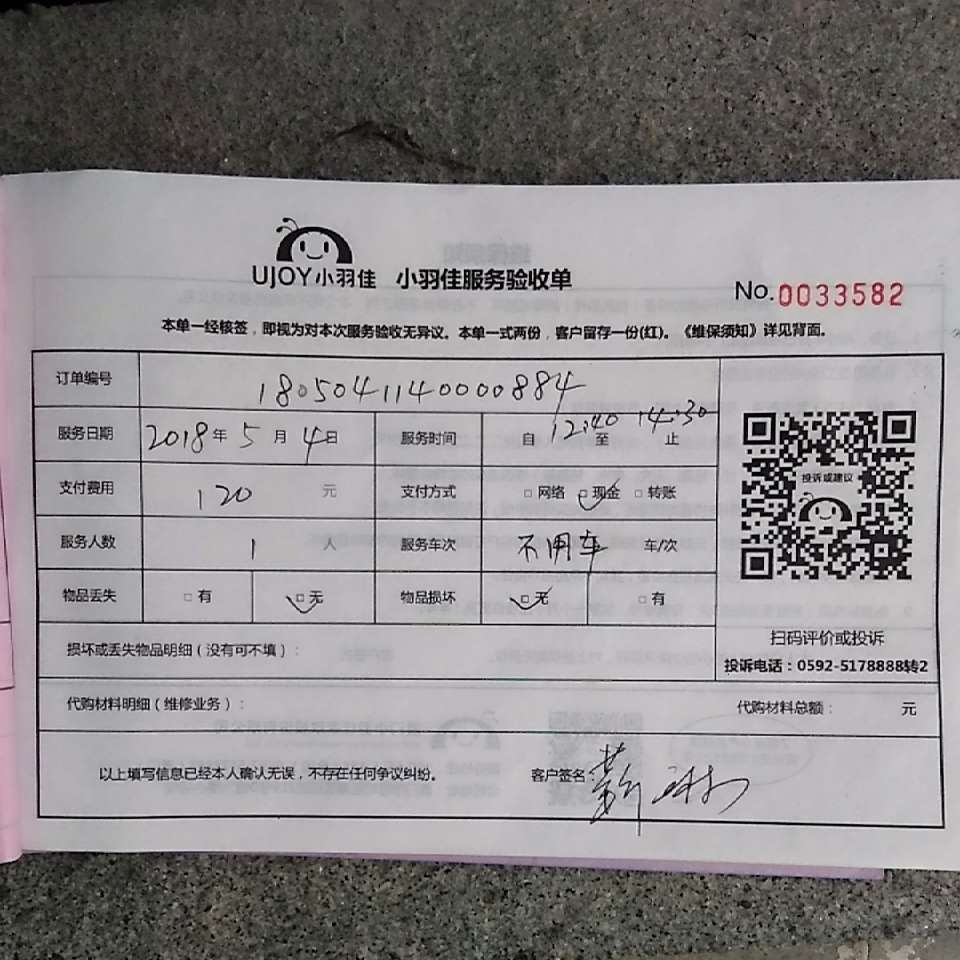 UJOY小羽佳 小羽佳服务验收单
No.0033582
本单一经核签，即视为对本次服务验收无异议。本单一式两份，客户留存一份(红)。《维保须知》详见背面。
订单编号 1805041140000884
服务日期 2018年5月4日 服务时间 自12:40至14:30止
支付费用 120元 支付方式 □网络 □现金 □转账
投诉或建议
服务人数 1人 服务车次 不用车 车/次
物品丢失 □有 □无 物品损坏 □无 □有
扫码评价或投诉
损坏或丢失物品明细（没有可不填）：
投诉电话：0592-5178888转2
代购材料明细（维修业务）： 代购材料总额： 元
以上填写信息已经本人确认无误，不存在任何争议纠纷。 客户签名：